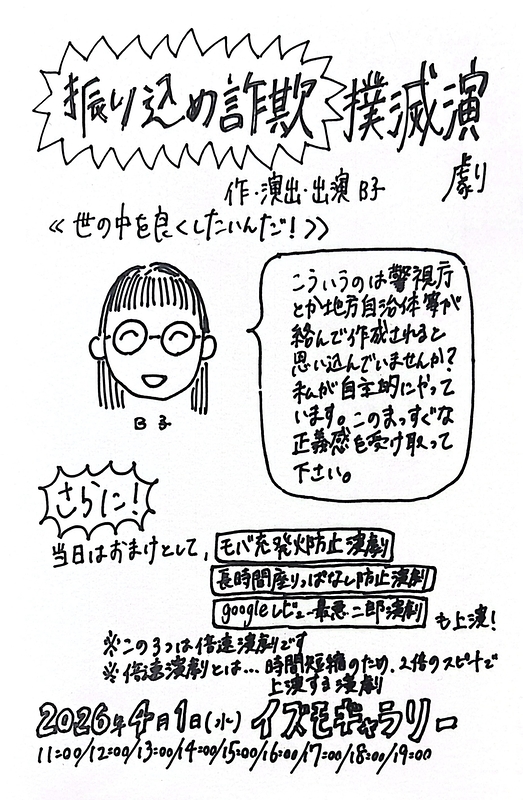 振り込め詐欺撲滅演劇
作・演出・出演 B子
≪世の中を良くしたいんだ!≫
こういうのは警視庁
とか地方自治体等が
絡んで作成されると
思い込んでいませんか?
私が自主的にやって
います。このまっすぐな
正義感を受け取って
下さい。
B子
さらに!
当日はおまけとして,モバ充発火防止演劇
長時間座りっぱなし防止演劇
googleレビュー最悪二郎演劇も上演!
※この3つは倍速演劇です
※倍速演劇とは…時間短縮のため、2倍のスピードで
上演する演劇
2026年4月1日(水)イズモギャラリー
11:00/12:00/13:00/14:00/15:00/16:00/17:00/18:00/19:00